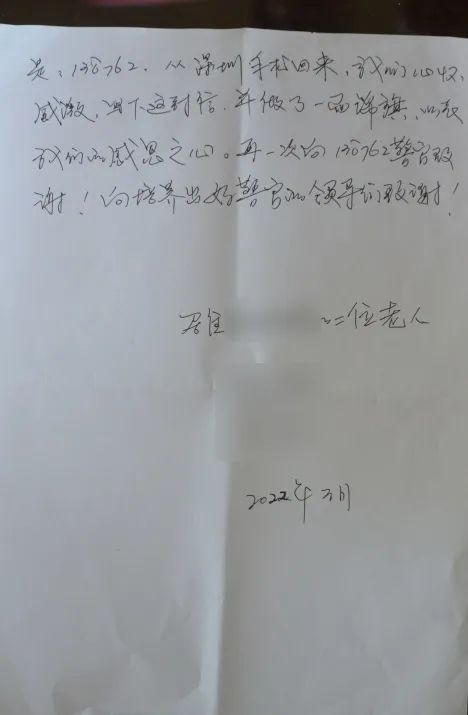 是：138762. 从深圳手术回来，我们心怀
感激，写下这封信，并做了一面锦旗，以表
我们的感恩之心。再一次向138762警官致
谢！向培养出好警官的领导们致谢！
居住 的二位老人
2022年3月